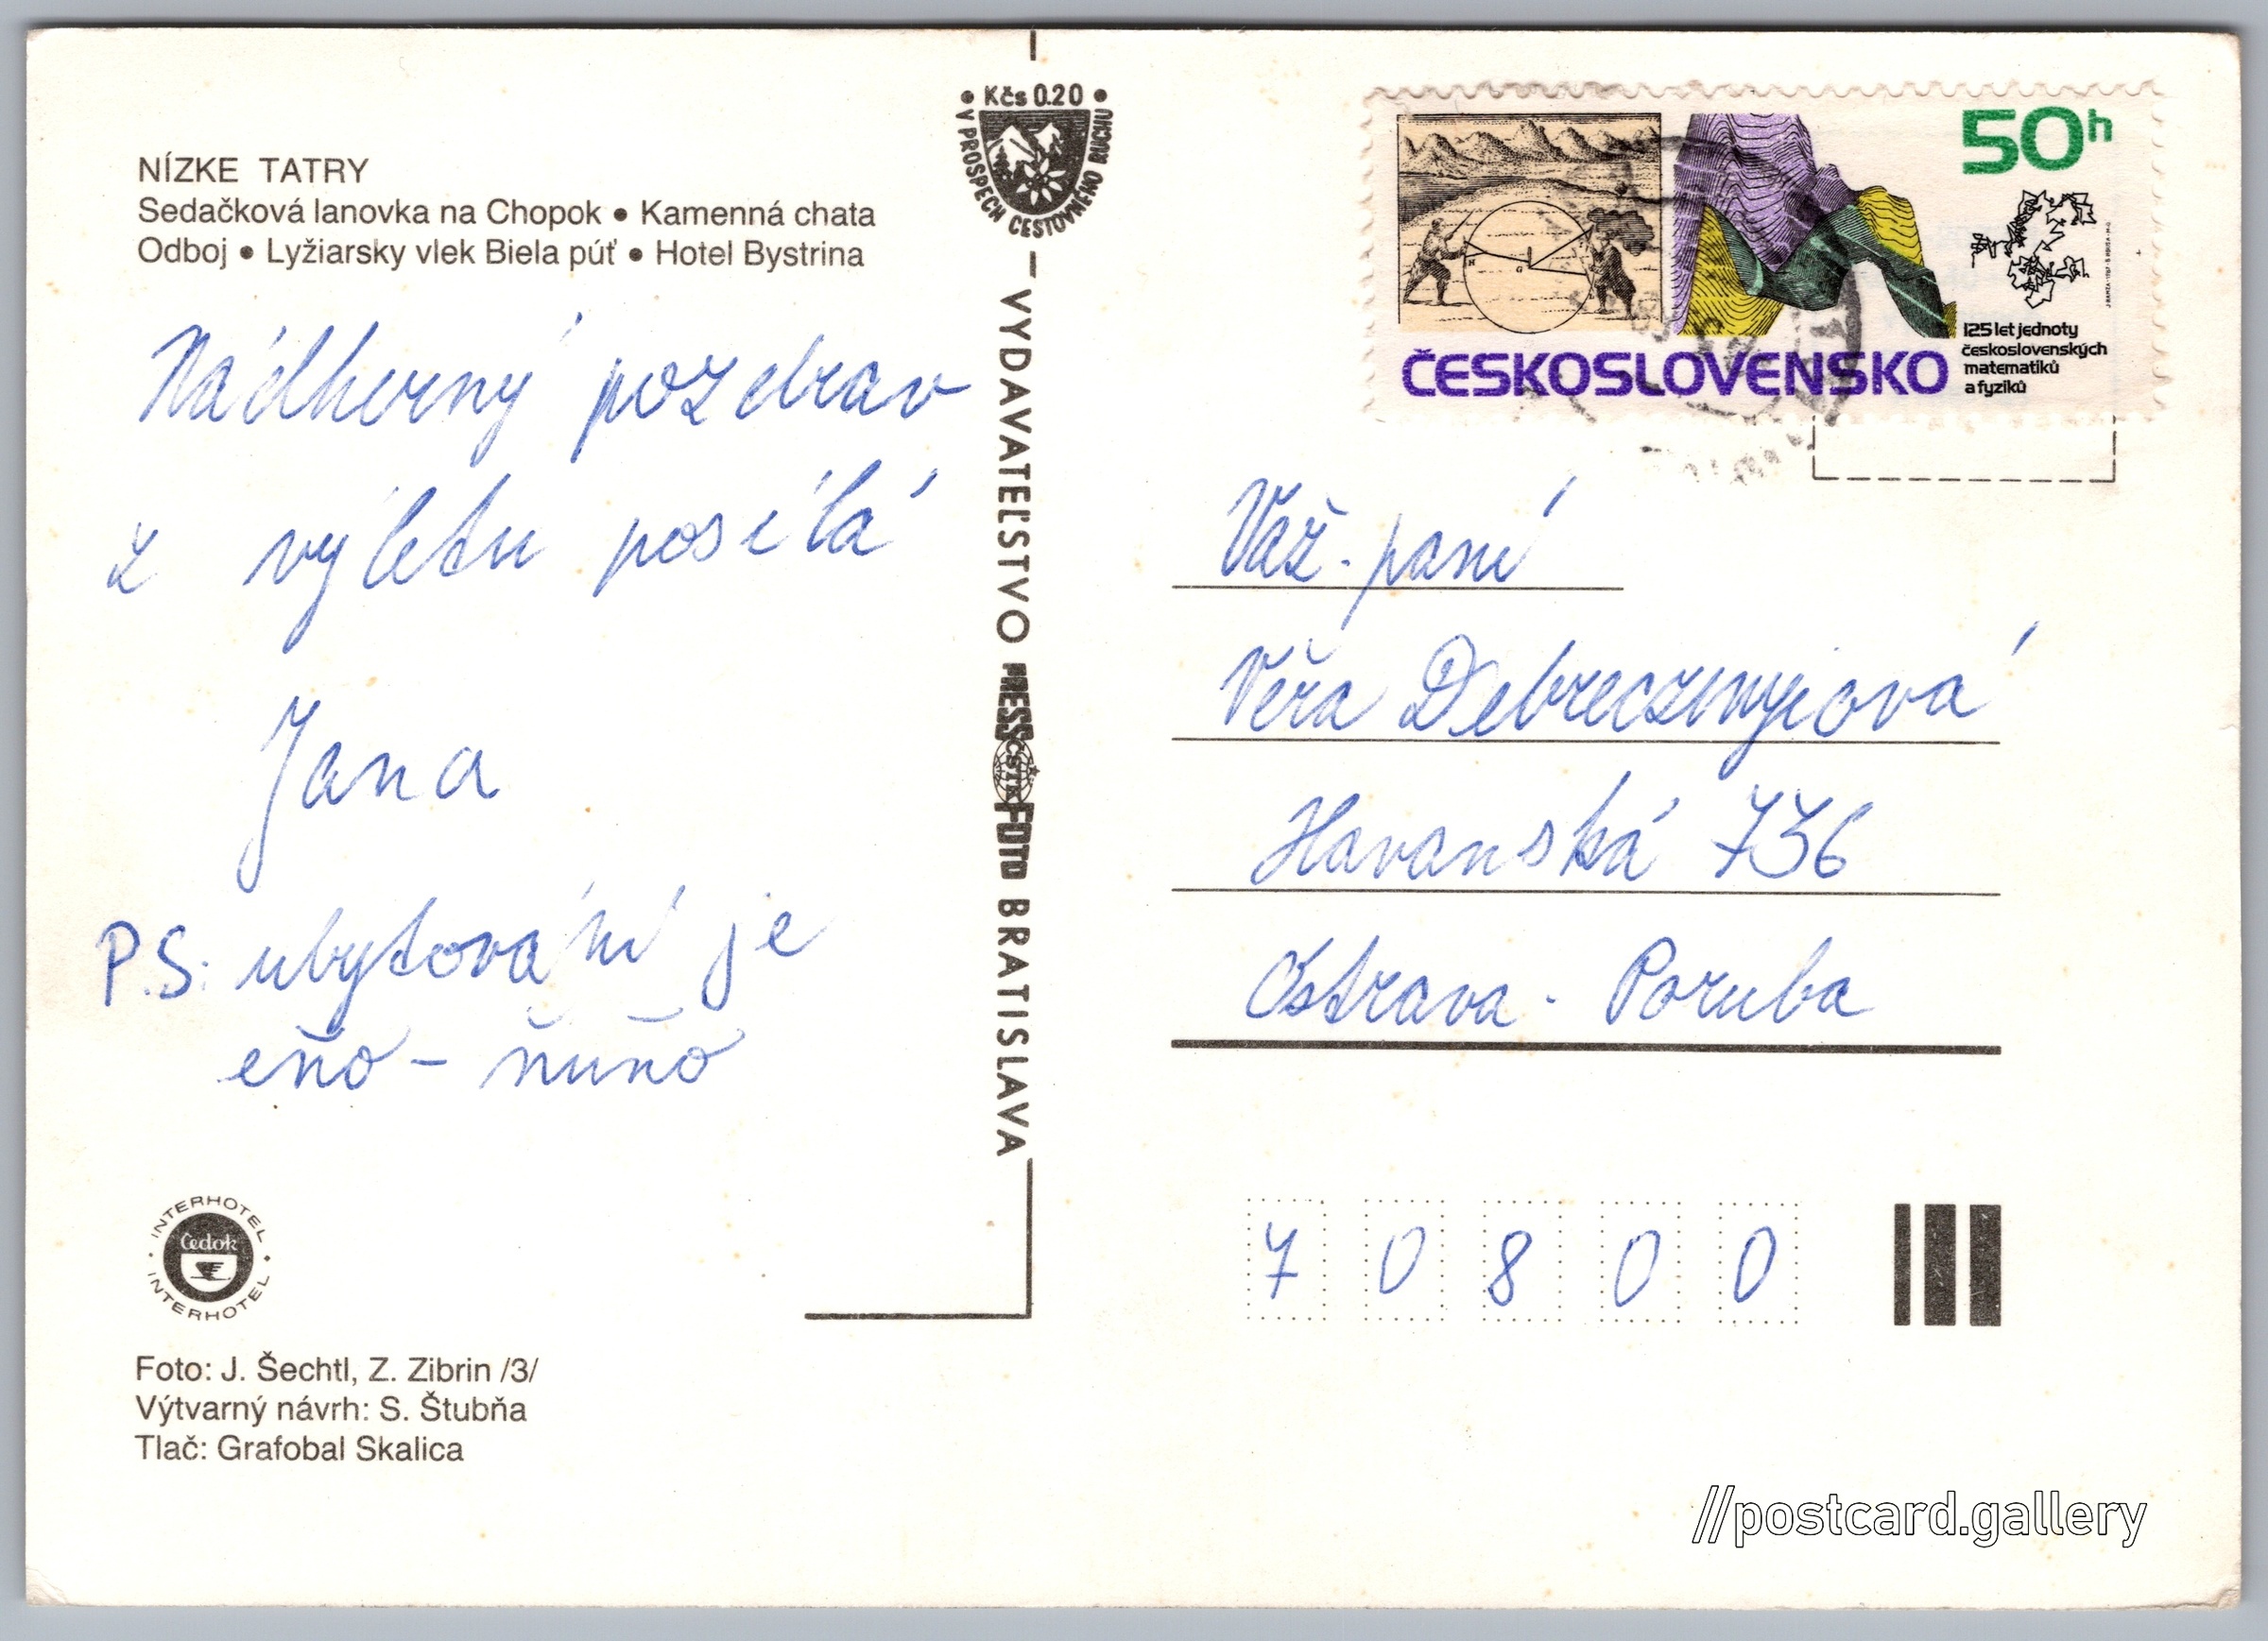 NÍZKE TATRY
Sedačková lanovka na Chopok • Kamenná chata
Odboj • Lyžiarsky vlek Biela púť • Hotel Bystrina
Nádherný pozdrav
z výletu posílá
Jana
P.S: ubytování je
eňo - ňuňo
INTERHOTEL
Čedok
INTERHOTEL
Foto: J. Šechtl, Z. Zibrin /3/
Výtvarný návrh: S. Štubňa
Tlač: Grafobal Skalica
• Kčs 0.20 •
V PROSPECH CESTOVNÉHO RUCHU
VYDAVATEĽSTVO PRESSFOTO BRATISLAVA
ČSTK
50h
125 let jednoty
československých
matematiků
a fyziků
ČESKOSLOVENSKO
Váž. paní
Věra Debreczenyiová
Havanská 736
Ostrava - Poruba
7 0 8 0 0
//postcard.gallery